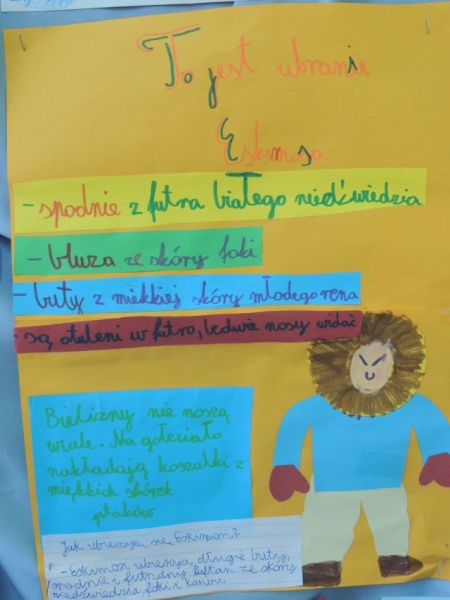 To jest ubranie
Eskimosa
- spodnie z futra białego niedźwiedzia
- bluza ze skóry foki
- buty z miękkiej skóry młodego rena
- są otuleni w futro, ledwie nosy widać
Bielizny nie noszą
wcale. Na gołe ciało
nakładają koszulki z
miękkich skórek
ptaków
Jak ubierają się Eskimosi?
- Eskimosi ubierają długie buty,
spodnie i futrzany kaftan ze skóry
niedźwiedzia, foki i karibu